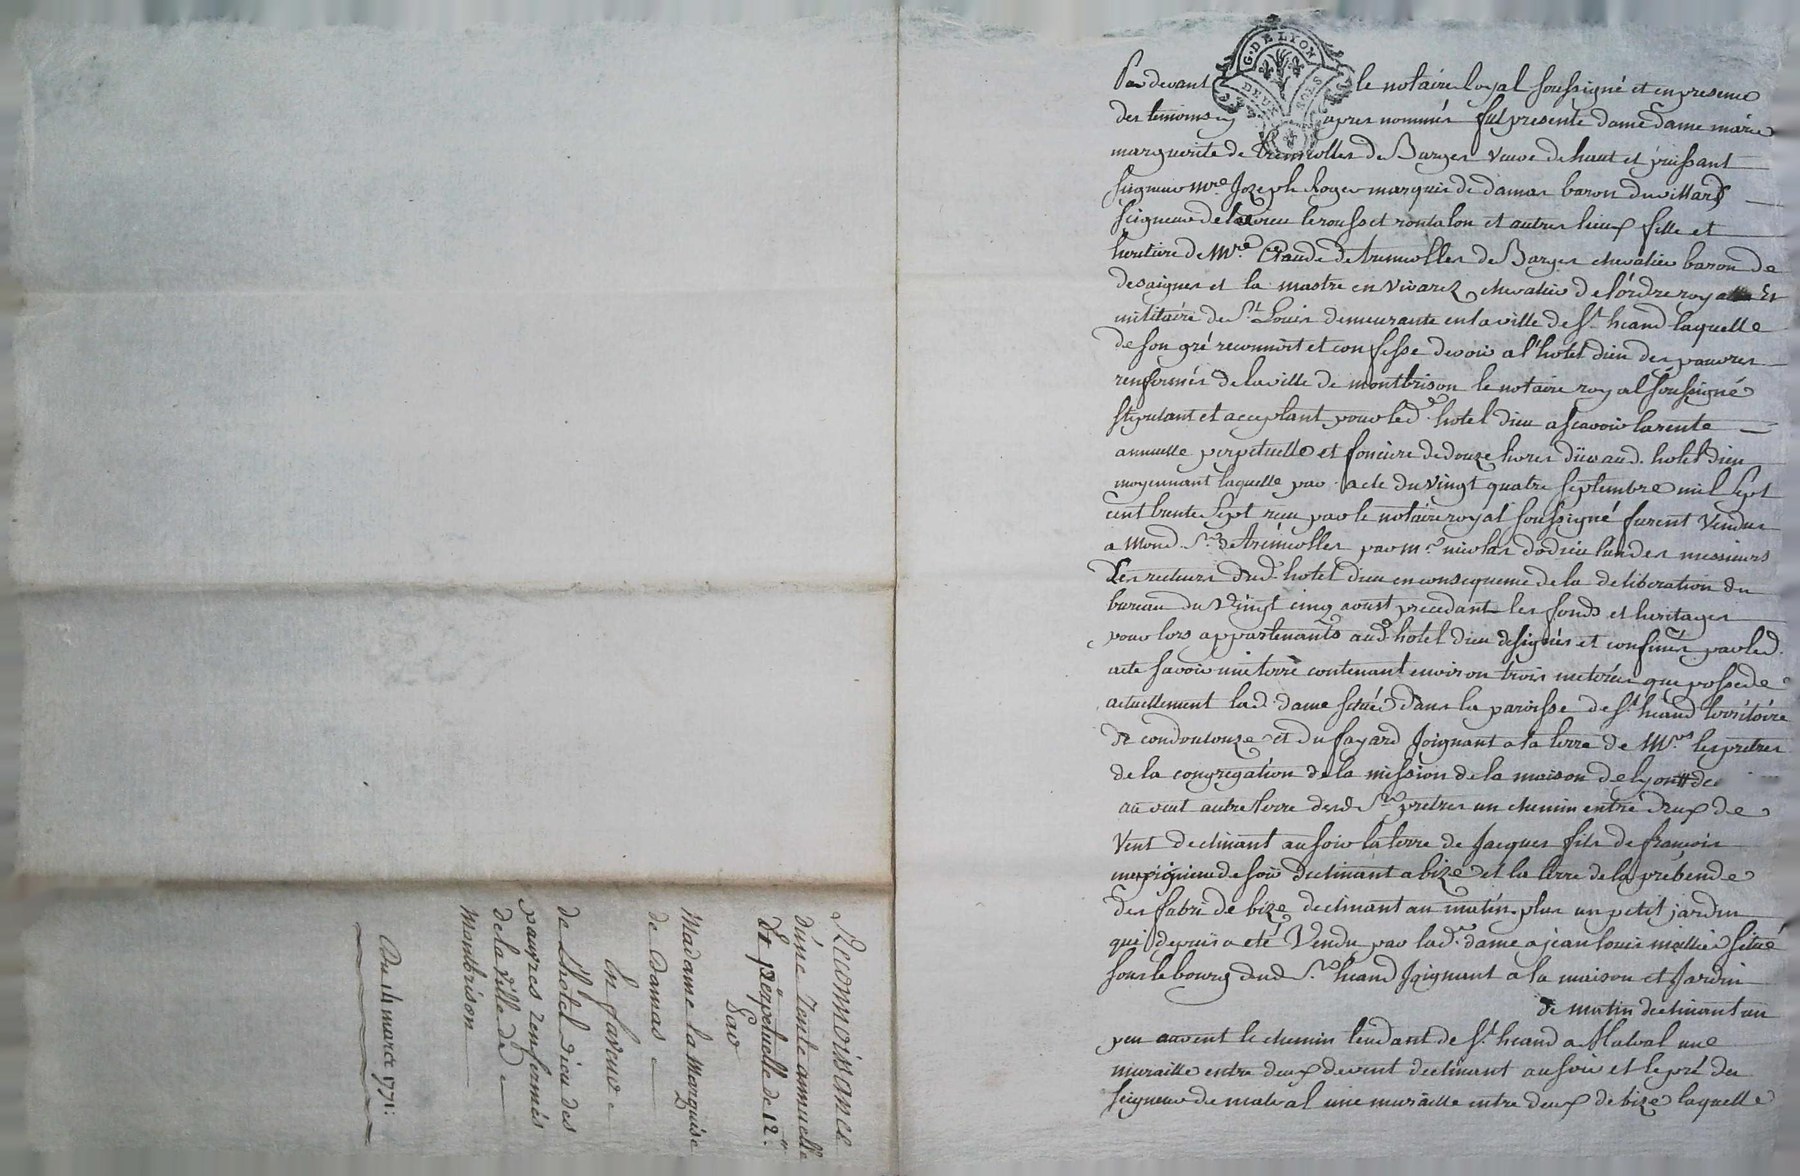 G. DE LYON
DEUX SOLS
Par devant le notaire royal soussigné et en presence
des temoins cy apres nommés fut presente dame dame marie
marguerite de Tremeolles de Barges veuve de haut et puissant
seigneur mre Jozeph Roger marquis de damas baron du villard
seigneur de lavieu le rousset rontalon et autres lieux fille et
heritiere de Mre Claude de tremeolles de Barges chevalier baron de
desaignes et la mastre en vivarez chevalier de l'ordre royal Et
militaire de St Louis demeurante en la ville de St heand laquelle
de son gré reconnoit et confesse devoir a l'hotel dieu des pauvres
renfermés de la ville de montbrison le notaire royal soussigné
stipulant et acceptant pour led. hotel dieu a scavoir la rente
annuelle perpetuelle et fonciere de douze livres düe aud. hotel dieu
moyennant laquelle par acte du vingt quatre septembre mil sept
cent trente sept recu par le notaire royal soussigné furent vendus
a mond. Sr. de trémeolles par mr nicolas dodieu l'un des messieurs
Les recteurs dud. hotel dieu en consequence de la deliberation du
bureau du vingt cinq aoust precedant les fonds et heritages
pour lors appartenants aud. hotel dieu designés et confinés par led.
acte savoir une terre contenant environ trois meterées que possede
actuellement lad. dame située dans la paroisse de St heand territoire
de condoulouze et du fayard Joignant a la terre de Mrs les pretres
de la congregation de la mission de la maison de lyon de
au vent autre terre desd. Srs pretres un chemin entre deux de
vent declinant au soir la terre de Jacques fils de francois
de soir declinant a bize et la terre de la prébende
des fabre de bize declinant au matin plus un petit jardin
qui depuis a eté vendu par lad. dame a jean louis situé
sous le bourg dud. St heand Joignant a la maison et Jardin
de matin declinant au
peu au vent le chemin tendant de St heand a Malval une
muraille entre deux de vent declinant au soir et le pré du
seigneur de malval une muraille entre deux de bize laquelle
Reconnoissance
d'une rente annuelle
Et perpetuelle de 12.lt
Par
Madame la Marquise
de Damas
En faveur
de L'hôtel dieu des
pauvres renfermés
de la ville de
Montbrison
Du 14 mars 1771: